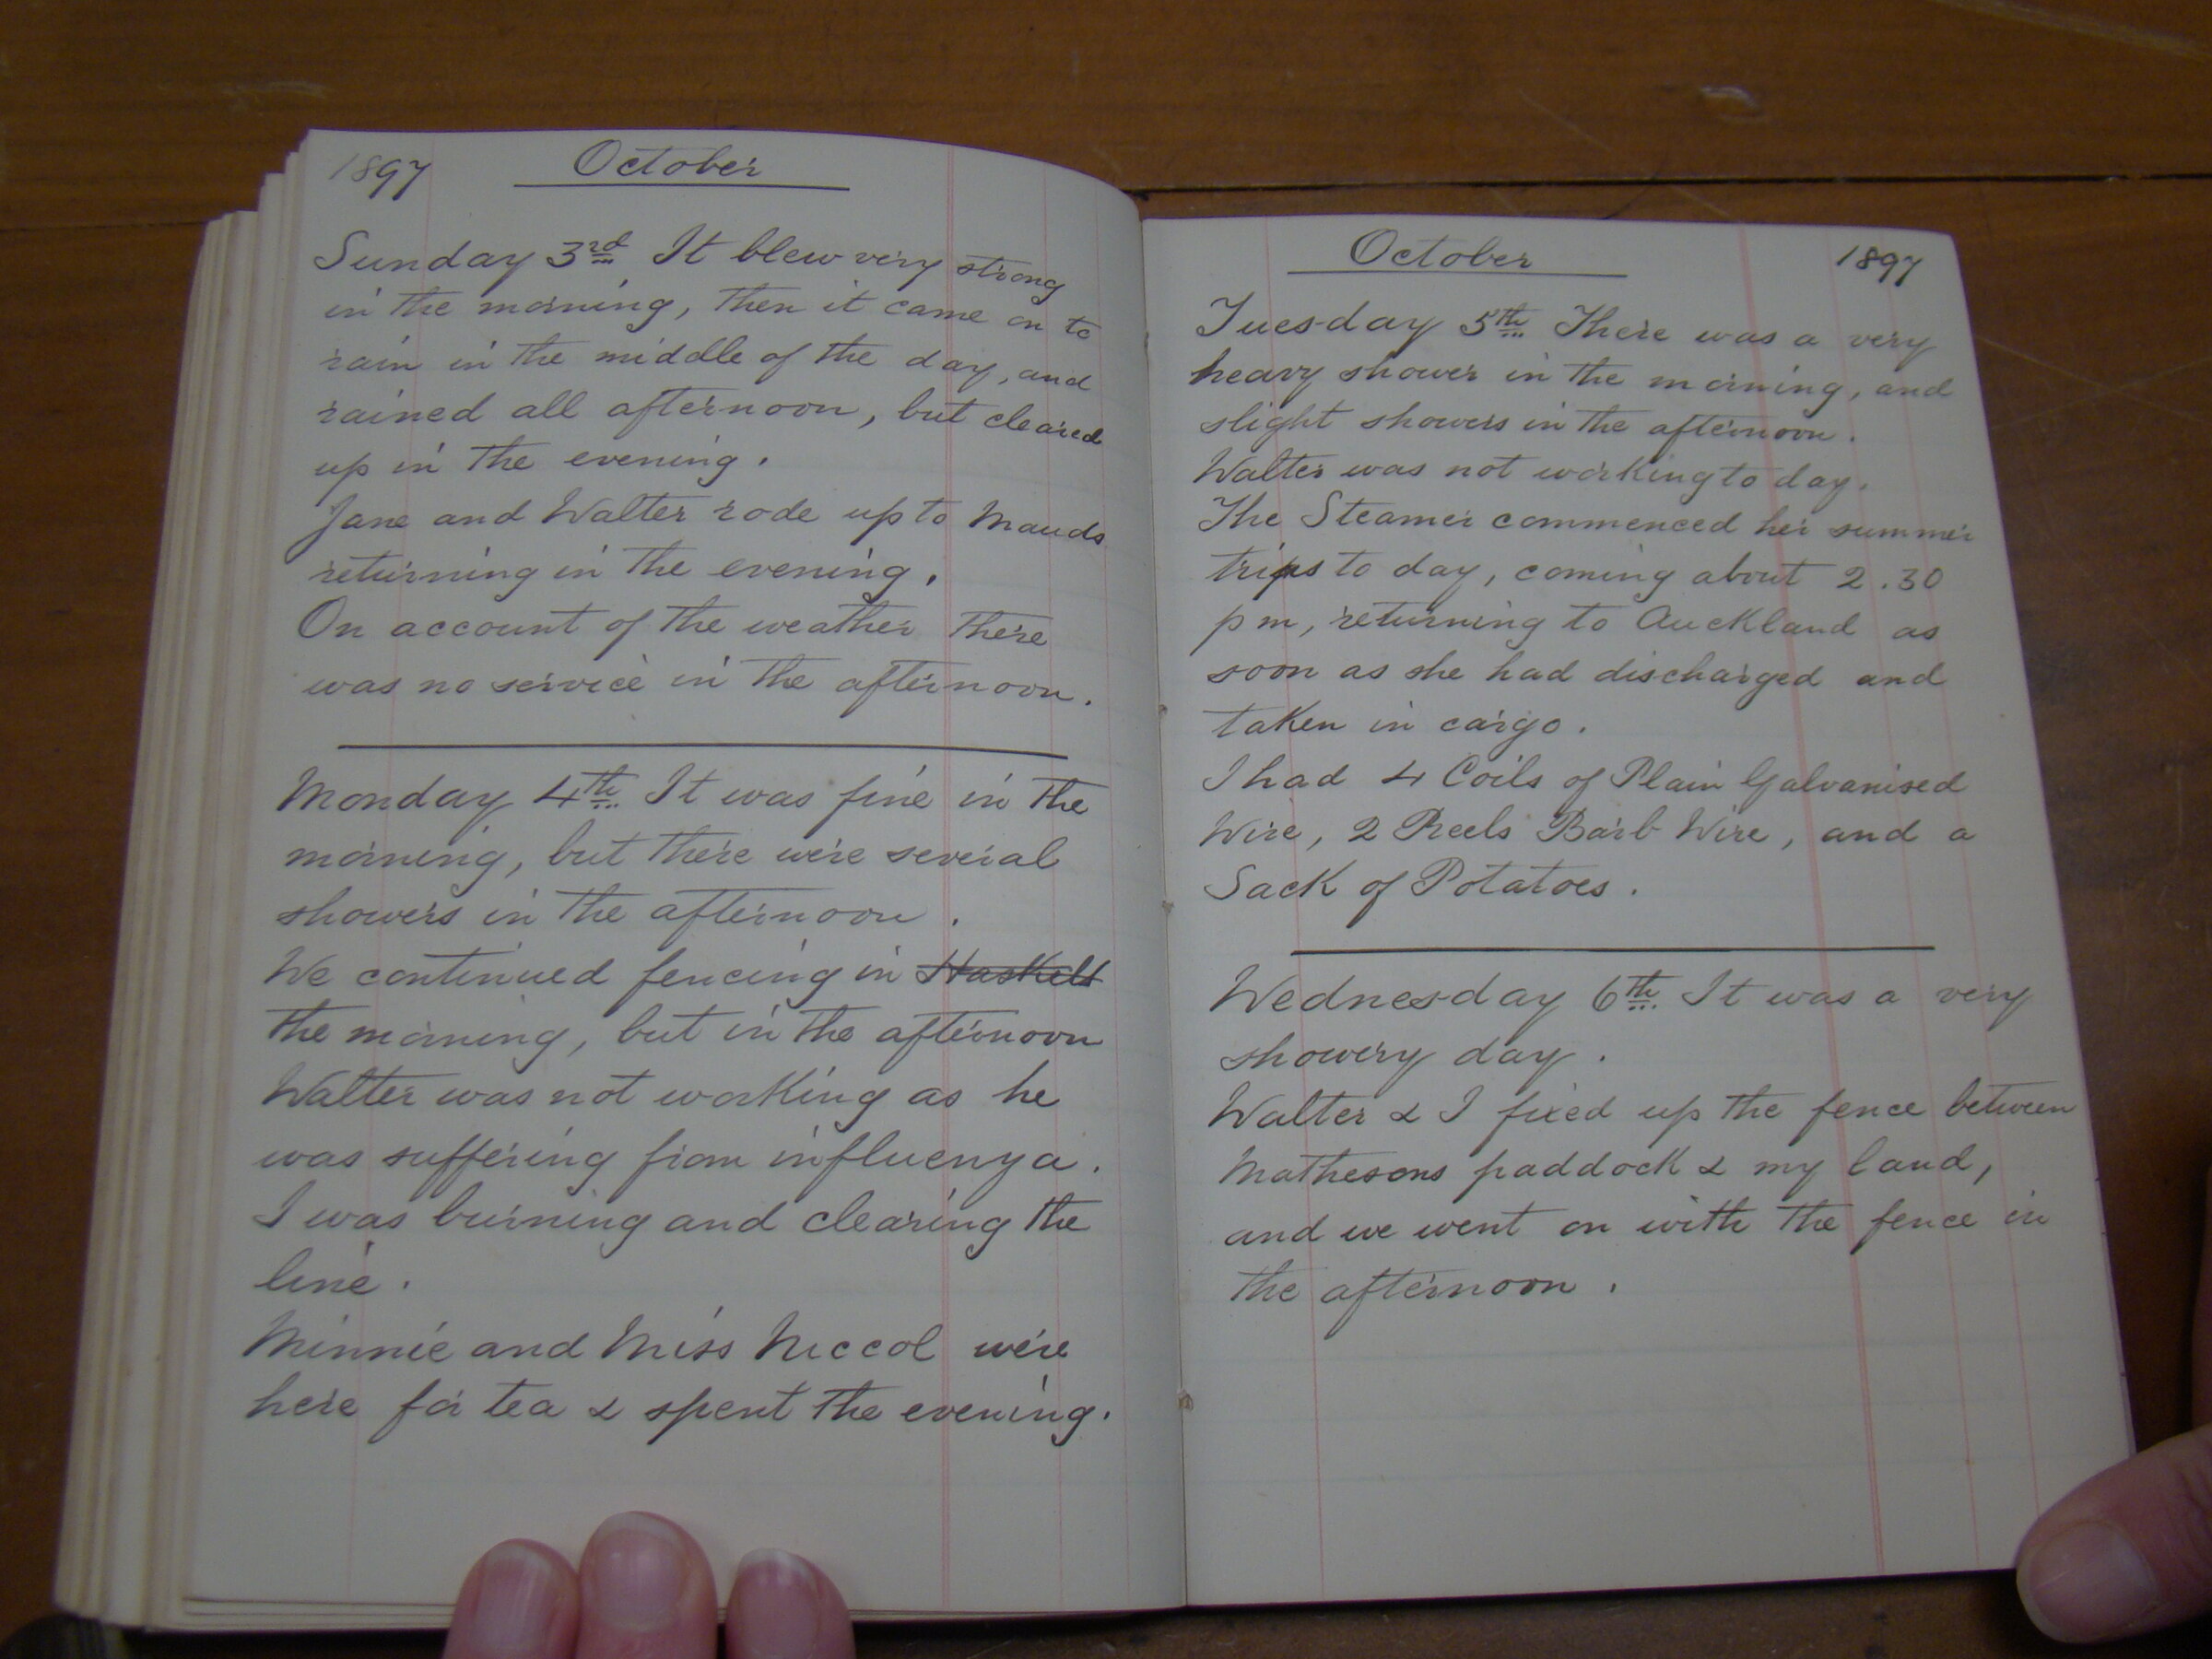 1897 October
Sunday 3rd. It blew very strong
in the morning, then it came on to
rain in the middle of the day, and
rained all afternoon, but cleared
up in the evening.
Jane and Walter rode up to Mauds
returning in the evening.
On account of the weather there
was no service in the afternoon.
Monday 4th. It was fine in the
morning, but there were several
showers in the afternoon.
We continued fencing in Haskell
the morning, but in the afternoon
Walter was not working as he
was suffering from influenza.
I was burning and clearing the
line.
Minnie and Miss Niccol were
here for tea & spent the evening.
October 1897
Tuesday 5th. There was a very
heavy shower in the morning, and
slight showers in the afternoon.
Walter was not working to day.
The Steamer commenced her summer
trips to day, coming about 2.30
pm, returning to Auckland as
soon as she had discharged and
taken in cargo.
I had 4 Coils of Plain Galvanised
Wire, 2 Reels Barb Wire, and a
Sack of Potatoes.
Wednesday 6th. It was a very
showery day.
Walter & I fixed up the fence between
Mathesons paddock & my land,
and we went on with the fence in
the afternoon.